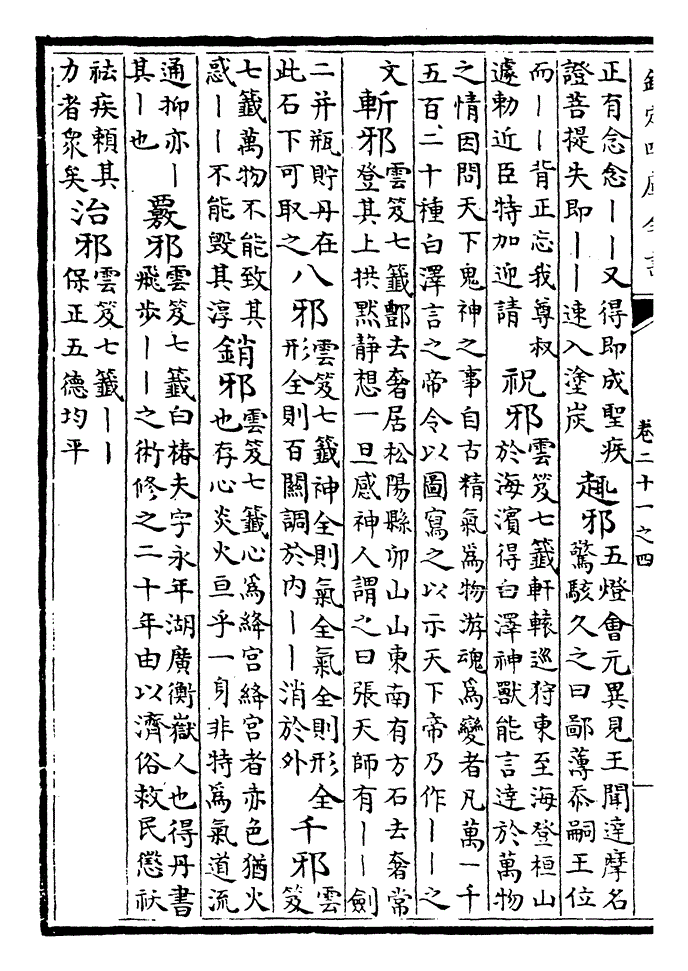 欽定四庫全書
卷二十一之四
正有念念｜｜又得即成聖疾
證菩提失即｜｜速入塗炭
趣邪
五燈會元異見王聞達摩名
驚駭久之曰鄙薄忝嗣王位
而｜｜背正忘我尊叔
遽勅近臣特加迎請
祝邪
雲笈七籤軒轅巡狩東至海登桓山
於海濱得白澤神獸能言達於萬物
之情因問天下鬼神之事自古精氣為物游魂為變者凡萬一千
五百二十種白澤言之帝令以圖寫之以示天下帝乃作｜｜之
文
斬邪
雲笈七籤酆去奢居松陽縣卯山山東南有方石去奢常
登其上拱黙靜想一旦感神人謂之曰張天師有｜｜劍
二并瓶貯丹在
此石下可取之
八邪
雲笈七籤神全則氣全氣全則形
形全則百關調於内｜｜消於外
全
干邪
雲
笈
七籤萬物不能致其
惑｜｜不能毁其淳
銷邪
雲笈七籤心為絳宫絳宫者亦色猶火
也存心炎火亘乎一身非特為氣道流
通抑亦｜
其｜也
覈邪
雲笈七籤白椿夫字永年湖廣衡嶽人也得丹書
飛歩｜｜之術修之二十年由以濟俗救民懲祅
袪疾頼其
力者衆矣
治邪
雲笈七籤｜｜
保正五德均平